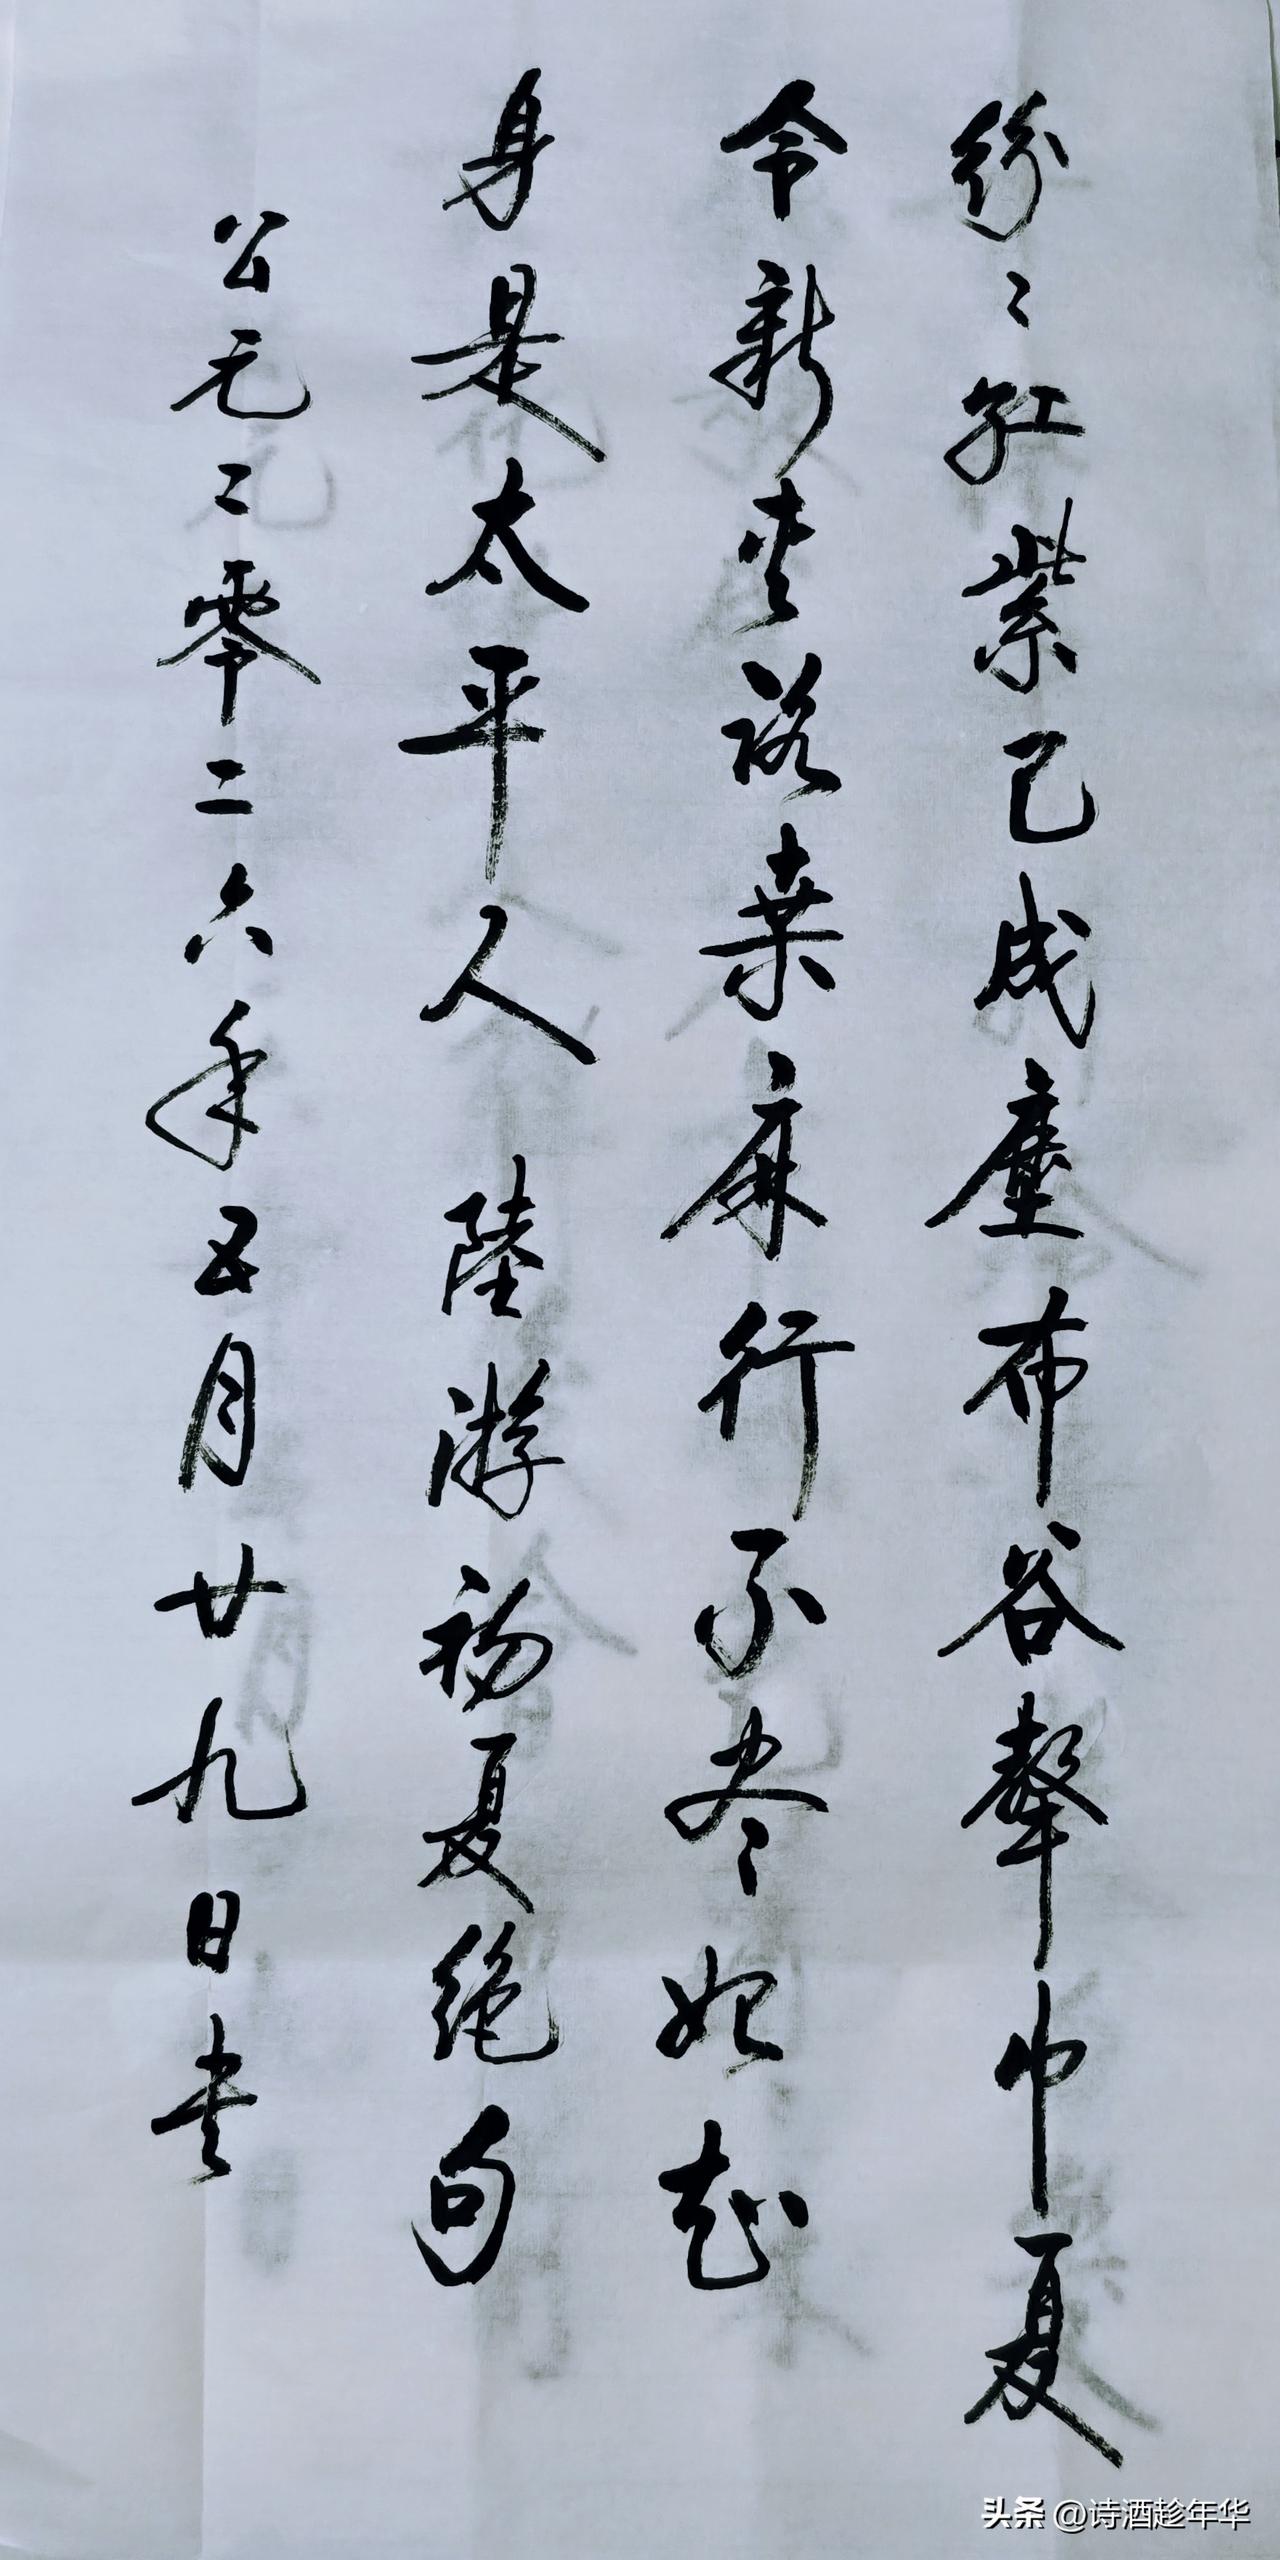 紛〻红紫已成塵布谷聲中夏
令新夹路桑麻行不尽始知
身是太平人 陸游初夏絕句
公元二零二六年五月廿九日書
头条 @诗酒趁年华